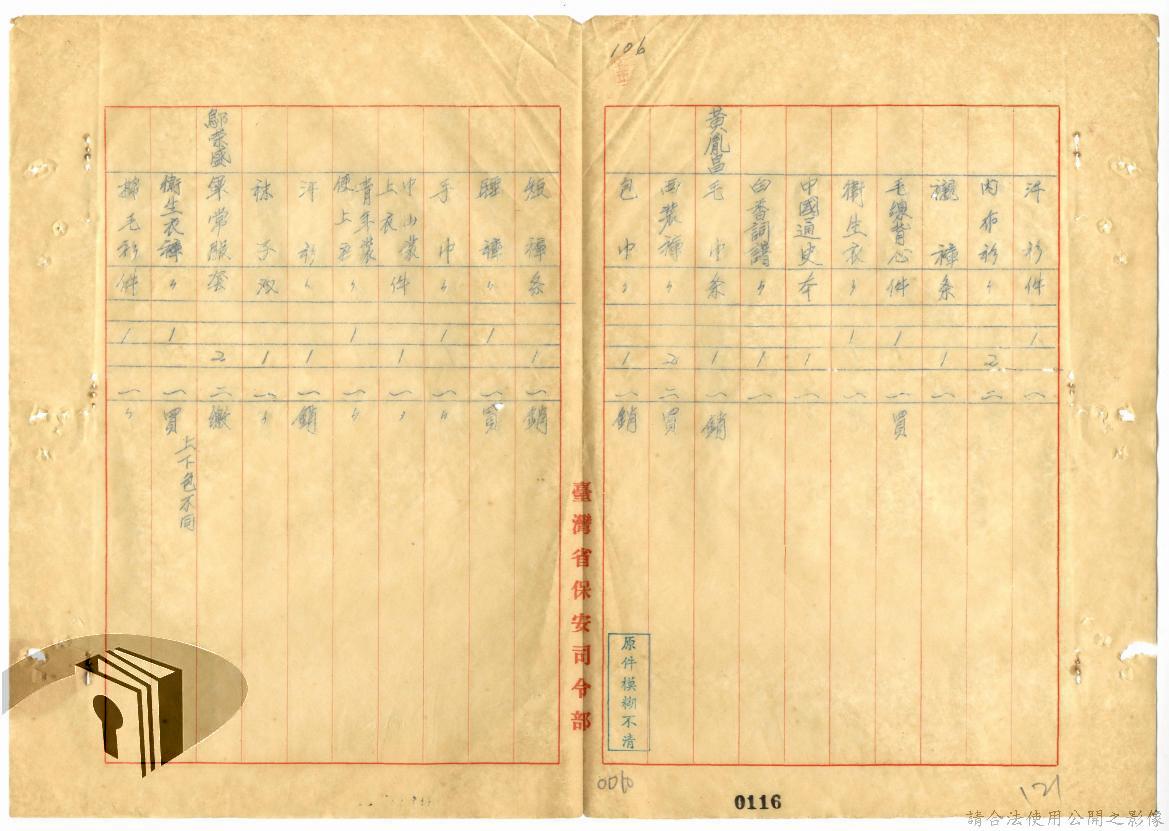 106
汗衫 件 1 一
內布衫 〃 2 二
襯褲 条 1 一
毛線背心 件 1 一 買
衛生衣 〃 1 一
中國通史 本 1 一
白香詞譜 〃 1 一
黃胤昌 毛巾 条 1 一 銷
西裝褲 〃 2 二 買
包巾 〃 1 一 銷
原件模糊不清
臺灣省保安司令部
短褲 条 1 一 銷
睡褲 〃 1 一 買
手巾 〃 1 一 〃
中山裝上衣 件 1 一 〃
青年裝便上衣 〃 1 一 〃
汗衫 〃 1 一 銷
袜子 双 1 一 〃
鄔荣盛 軍常服 套 2 二 繳
衛生衣褲 〃 1 一 買 上下色不同
棉毛衫 件 1 一 〃
0116
121
請合法使用公開之影像